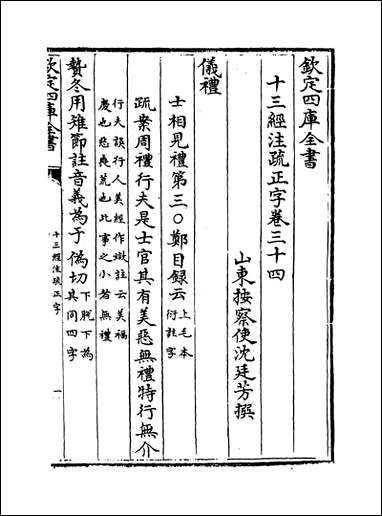 欽定四庫全書
十三經注疏正字卷三十四
山東按察使沈廷芳撰
儀禮
士相見禮第三○鄭目録云
上毛本
衍註字
疏案周禮行夫是士官其有美惡無禮特行無介
行夫誤行人美經作媺註云美福
慶也惡喪荒也此事之小若無禮
贄冬用雉節註音義為于偽切
下脱下為
其同四字
欽定四庫全書
十三經注疏正字
一